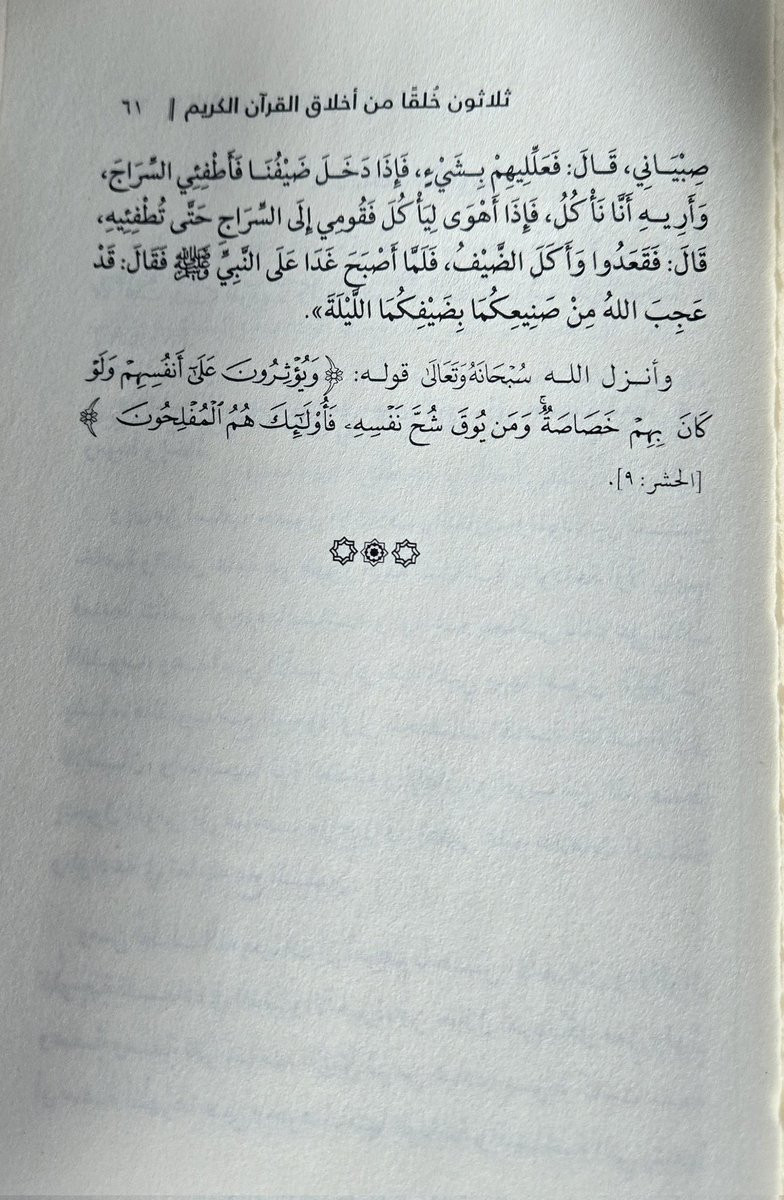 ثلاثون خُلقًا من أخلاق القرآن الكريم || ٦١
صِبْيَانِي، قَالَ: فَعَلِّلِيهِمْ بِشَيْءٍ، فَإِذَا دَخَلَ ضَيْفُنَا فَأَطْفِئِي السِّرَاجَ،
وَأَرِيهِ أَنَّا نَأْكُلُ، فَإِذَا أَهْوَى لِيَأْكُلَ فَقُومِي إِلَى السِّرَاجِ حَتَّى تُطْفِئِيهِ،
قَالَ: فَقَعَدُوا وَأَكَلَ الضَّيْفُ، فَلَمَّا أَصْبَحَ غَدَا عَلَى النَّبِيِّ ﷺ فَقَالَ: قَدْ
عَجِبَ اللهُ مِنْ صَنِيعِكُمَا بِضَيْفِكُمَا اللَّيْلَةَ».
وأنزل الله سُبْحَانَهُ وَتَعَالَىٰ قوله: ﴿وَيُؤْثِرُونَ عَلَىٰٓ أَنفُسِهِمْ وَلَوْ
كَانَ بِهِمْ خَصَاصَةٌۚ وَمَن يُوقَ شُحَّ نَفْسِهِۦ فَأُوْلَٰٓئِكَ هُمُ ٱلْمُفْلِحُونَ﴾
[الحشر: ٩].